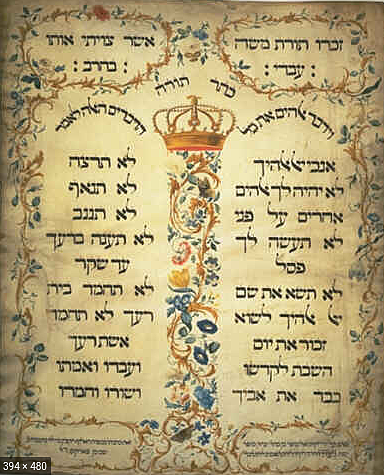 זכרו תורת משה
: עבדי :
אשר צויתי אותו
: בחרב :
כתר תורה
וידבר אלהים את כל
הדברים האלה לאמר
אנכי יי אלהיך
לא יהיה לך אלהים
אחרים על פני
לא תעשה לך
פסל
לא תשא את שם
יי אלהיך לשוא
זכור את יום
השבת לקדשו
כבד את אביך
לא תרצח
לא תנאף
לא תגנב
לא תענה ברעך
עד שקר
לא תחמד בית
רעך לא תחמד
אשת רעך
ועבדו ואמתו
ושורו וחמרו
394 × 480